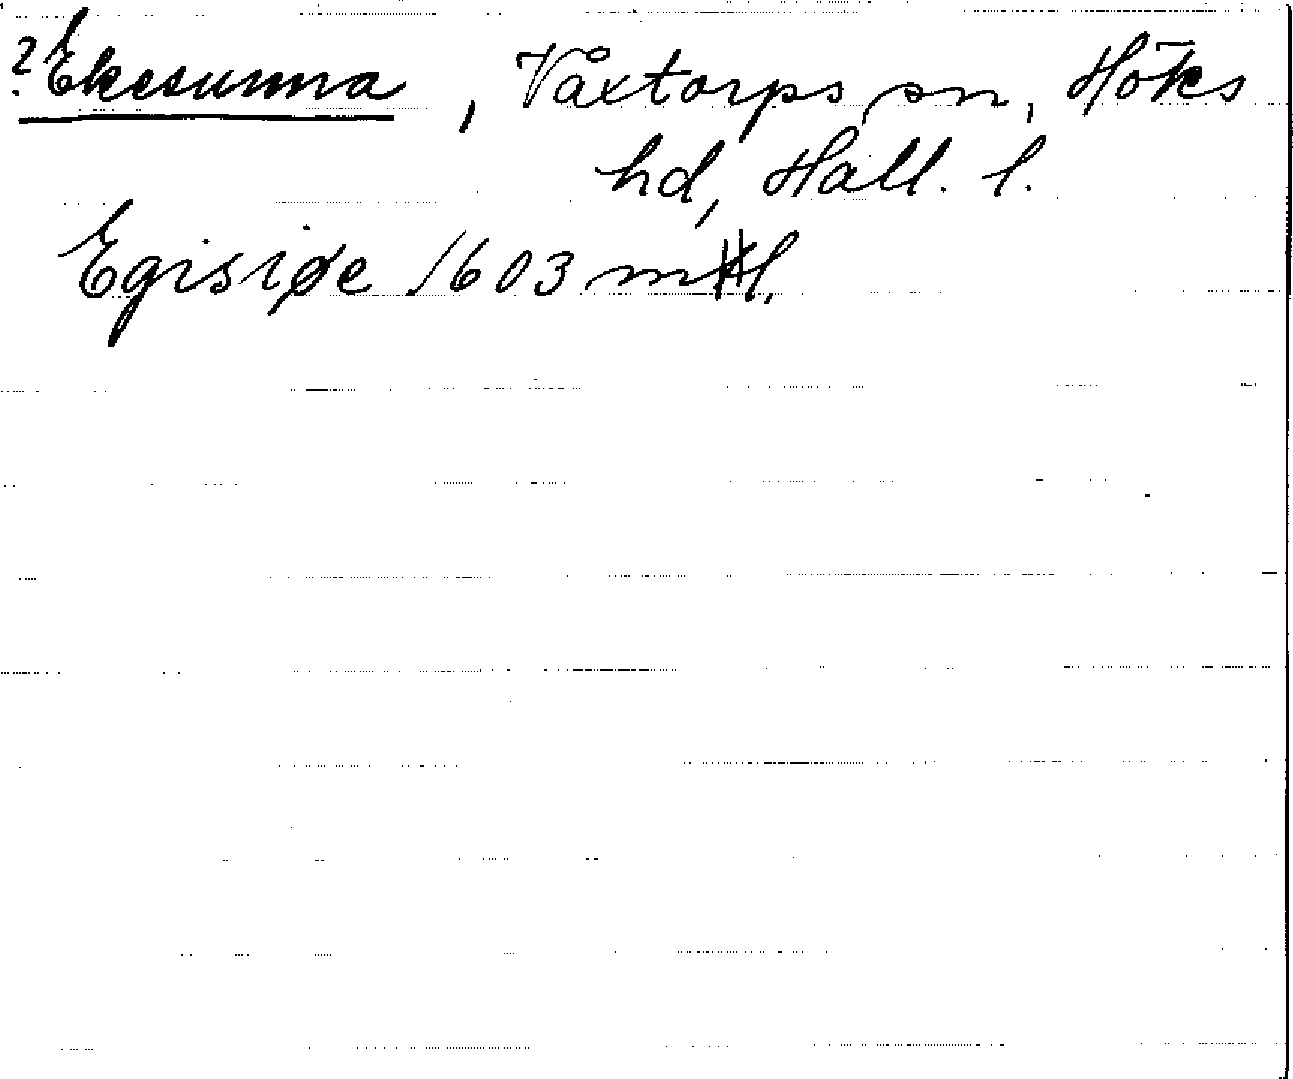 ?Ekesunna, Våxtorps sn, Höks
hd, Hall. l.
Egisiøe 1603 mtl.